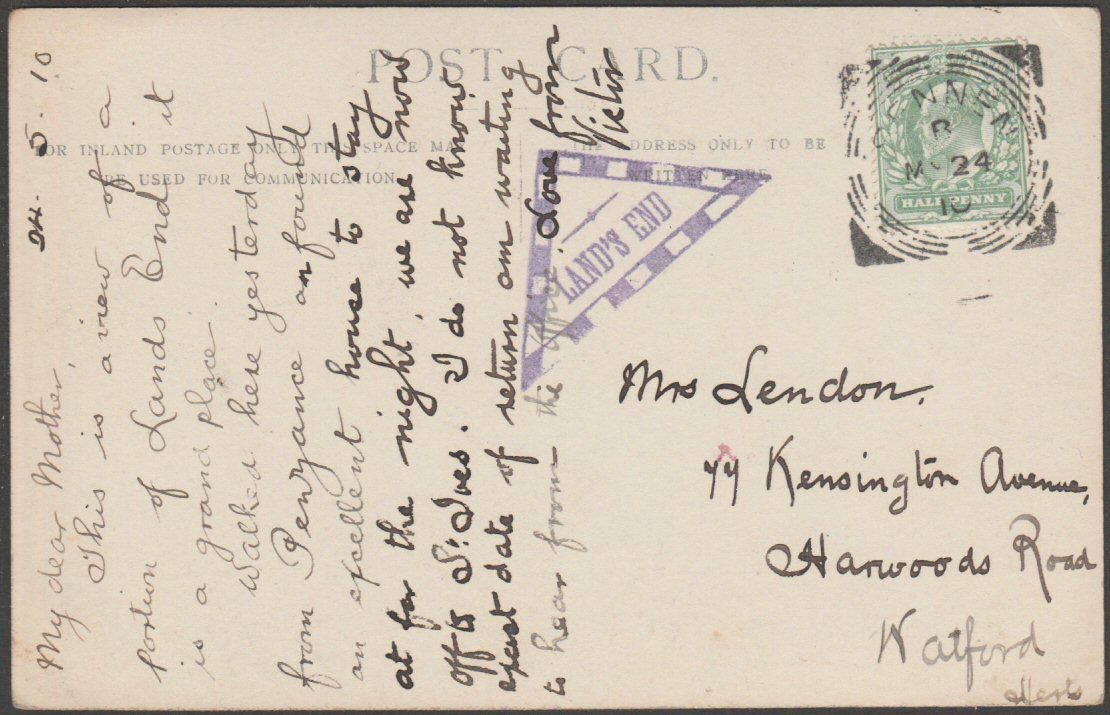 POST CARD.
FOR INLAND POSTAGE ONLY THIS SPACE MAY
BE USED FOR COMMUNICATION
THE ADDRESS ONLY TO BE
WRITTEN HERE
24. 5. 10
My dear Mother,
This is a view of a
portion of Lands End it
is a grand place.
Walked here yesterday
from Penzance an found
an excellent house to stay
at for the night, we are now
off to St. Ives. I do not know
exact date of return am waiting
to hear from the office. Love from
Victor
LAND'S END
MY 24
10
HALFPENNY
Mrs Lendon.
77 Kensington Avenue,
Harwoods Road
Watford
Herts